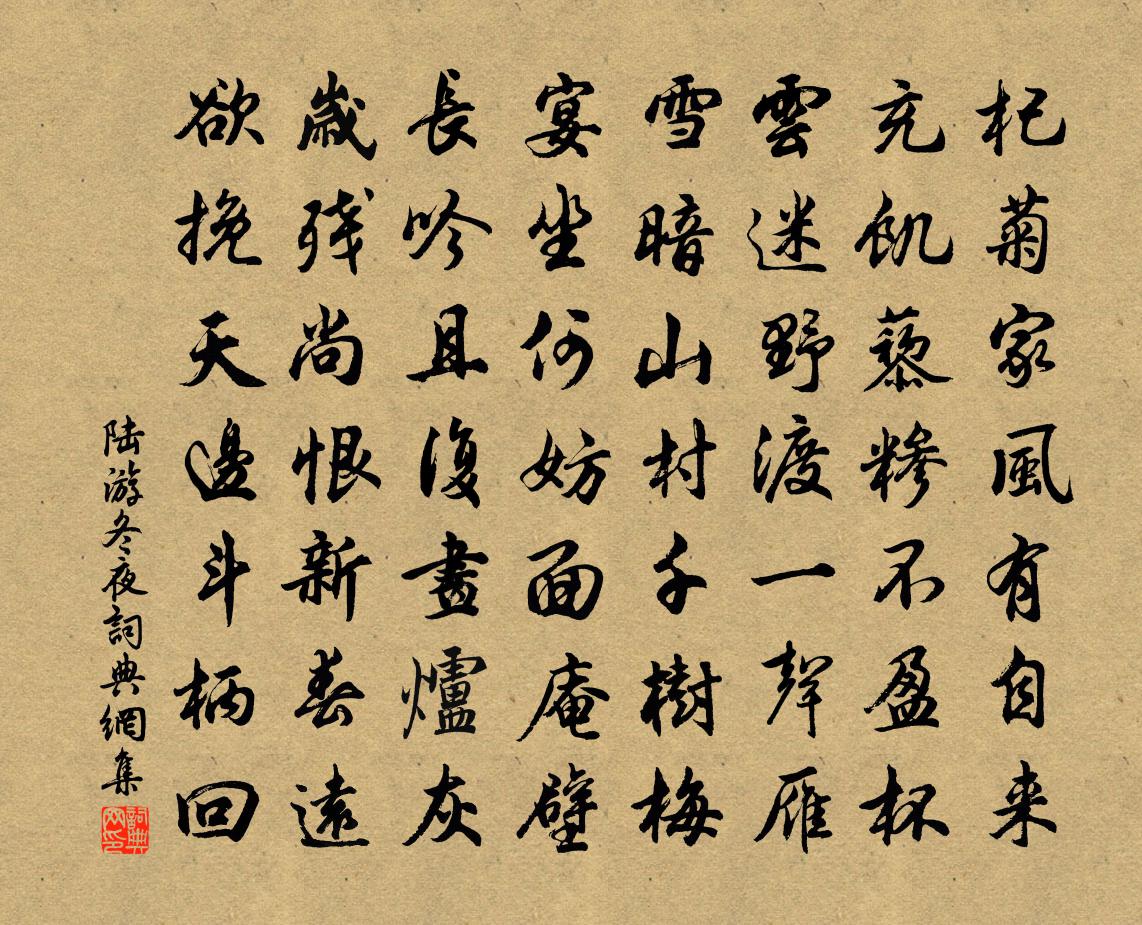 杞菊家風有自来
充飢藜糝不盈杯
雲迷野渡一聲雁
雪暗山村千樹梅
宴坐何妨面庵壁
長吟且復畫爐灰
歲殘尚恨新春遠
欲挽天邊斗柄回
陆游冬夜詞典網集
詞典网印